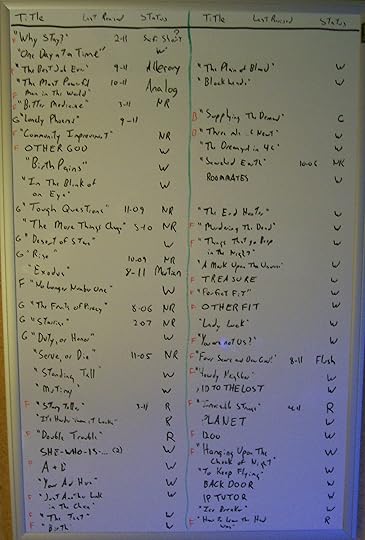 Title Last Revised Status
F "Why Stay?" 2-11
"One Day at a Time" W
"The Best of Evil" 9-11 Allegory
"The Most Powerful 10-11 Analog
Man in the World"
F "Bitter Medicine" 3-11 NR
G "Lonely Phoenix" 9-11
F "Community Improvement" NR
F OTHER GOD W
"Birth Pains" W
"In The Blink of W
an Eye"
G "Tough Questions" 11-09 NR
"The More Things Change" 5-10 NR
G "Desert of Stars" W
G "Rise" 10.09 NR
"Exodus" 8-11
F "No Longer Number One" W
G "The Fruits of Piracy" 8-06 NR
G "Staring" 2-07 NR
G "Duty, or Honor" W
"Serve, or Die" 11-05 NR
"Standing Tall" W
"Mutiny" W
F "Story Teller" 3-11 R
"It's Harder Than it Looks" R
F "Double Trouble" R
SHE-WHO-IS-... (2) W
F A + E W
"Your Ad Here" W
F "Just Another Link W
in the Chain"
F "The Test" W
F "Birth W
Title Last Revised Status
"The Plain of Blood" W
"Blockheads" W
B "Supplying The Demand" C
B W
"The Dreamyrd in 4C" W
"Scorched Earth" 10-06 NR
ROOMMATES W
"The End Hunter" W
F "Murdering The Dead" W
F "Things that go Beep W
in the Night"
"A Mark Upon The W
F TREASURE W
F "Perfect Fit" W
F OTHER FIT W
"Lady Luck" W
F "You are not Us?" W
F "Four Score and One Gun" 8-11 Flush
F "Howdy Neighbor" W
ID TO THE LOST W
F "Invincible 4-11 R
PLANET W
F 1200 W
F "Hanging Upon The W
Cheek of Night"
"To Keep Flying" W
BACK DOOR W
IP TUTOR W
"Ice Breaker" W
F "How To Learn The Hard R
Way"